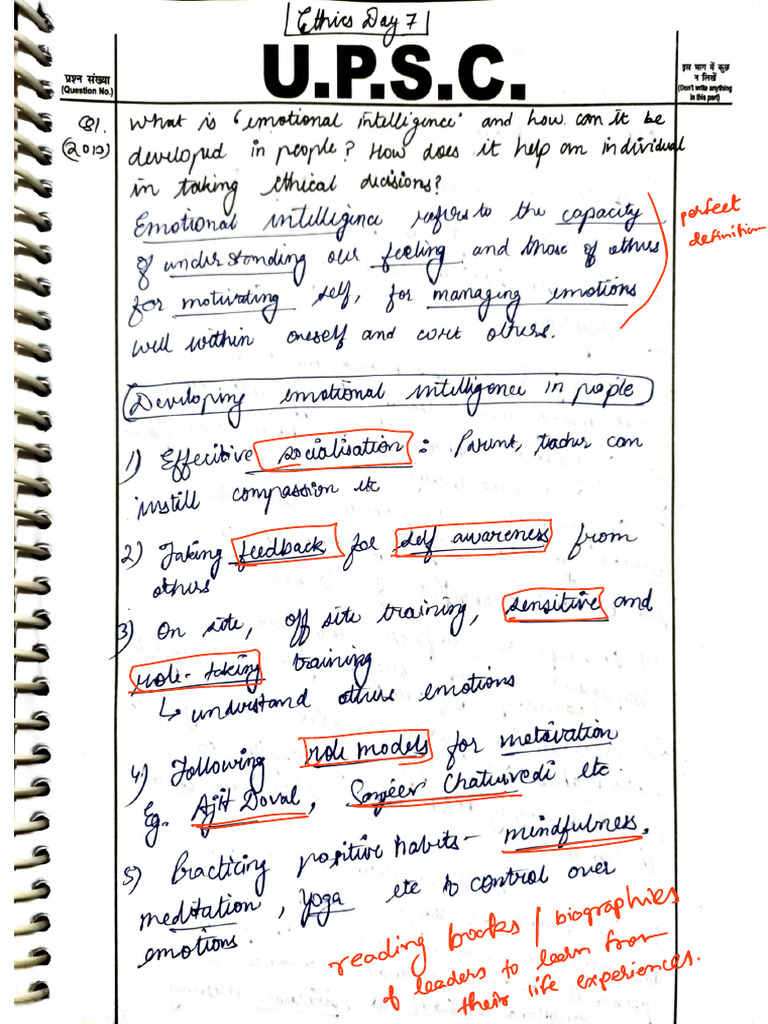 Ethics Day 7
U.P.S.C.
प्रश्न संख्या
(Question No.)
इस भाग में कुछ
न लिखें
(Don't write anything
in this part)
Q1.
(2013)
What is 'emotional intelligence' and how can it be
developed in people? How does it help an individual
in taking ethical decisions?
Emotional intelligence refers to the capacity
of understanding our feeling and those of others
for motivating self, for managing emotions
well within oneself and wort others.
perfect
definition
Developing emotional intelligence in people
1) Effective socialisation : Parent, teacher can
instill compassion etc
2) Taking feedback for self awareness from
others
3) On site, off site training, sensitive and
role-taking training
↳ understand others emotions
4) Following role models for motivation
Eg. Ajit Doval, Sanjeev Chaturvedi etc.
5) Practicing positive habits - mindfulness,
meditation, yoga etc to control over
emotions.
reading books / biographies
of leaders to learn from
their life experiences.